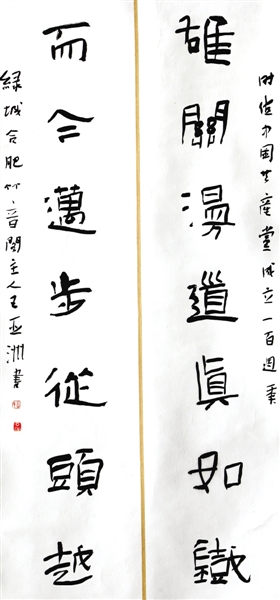 时值中国共產黨成立一百週年
雄關漫道眞如鐵
而今邁步從頭越
綠城合肥竹音閣主人王亚洲書